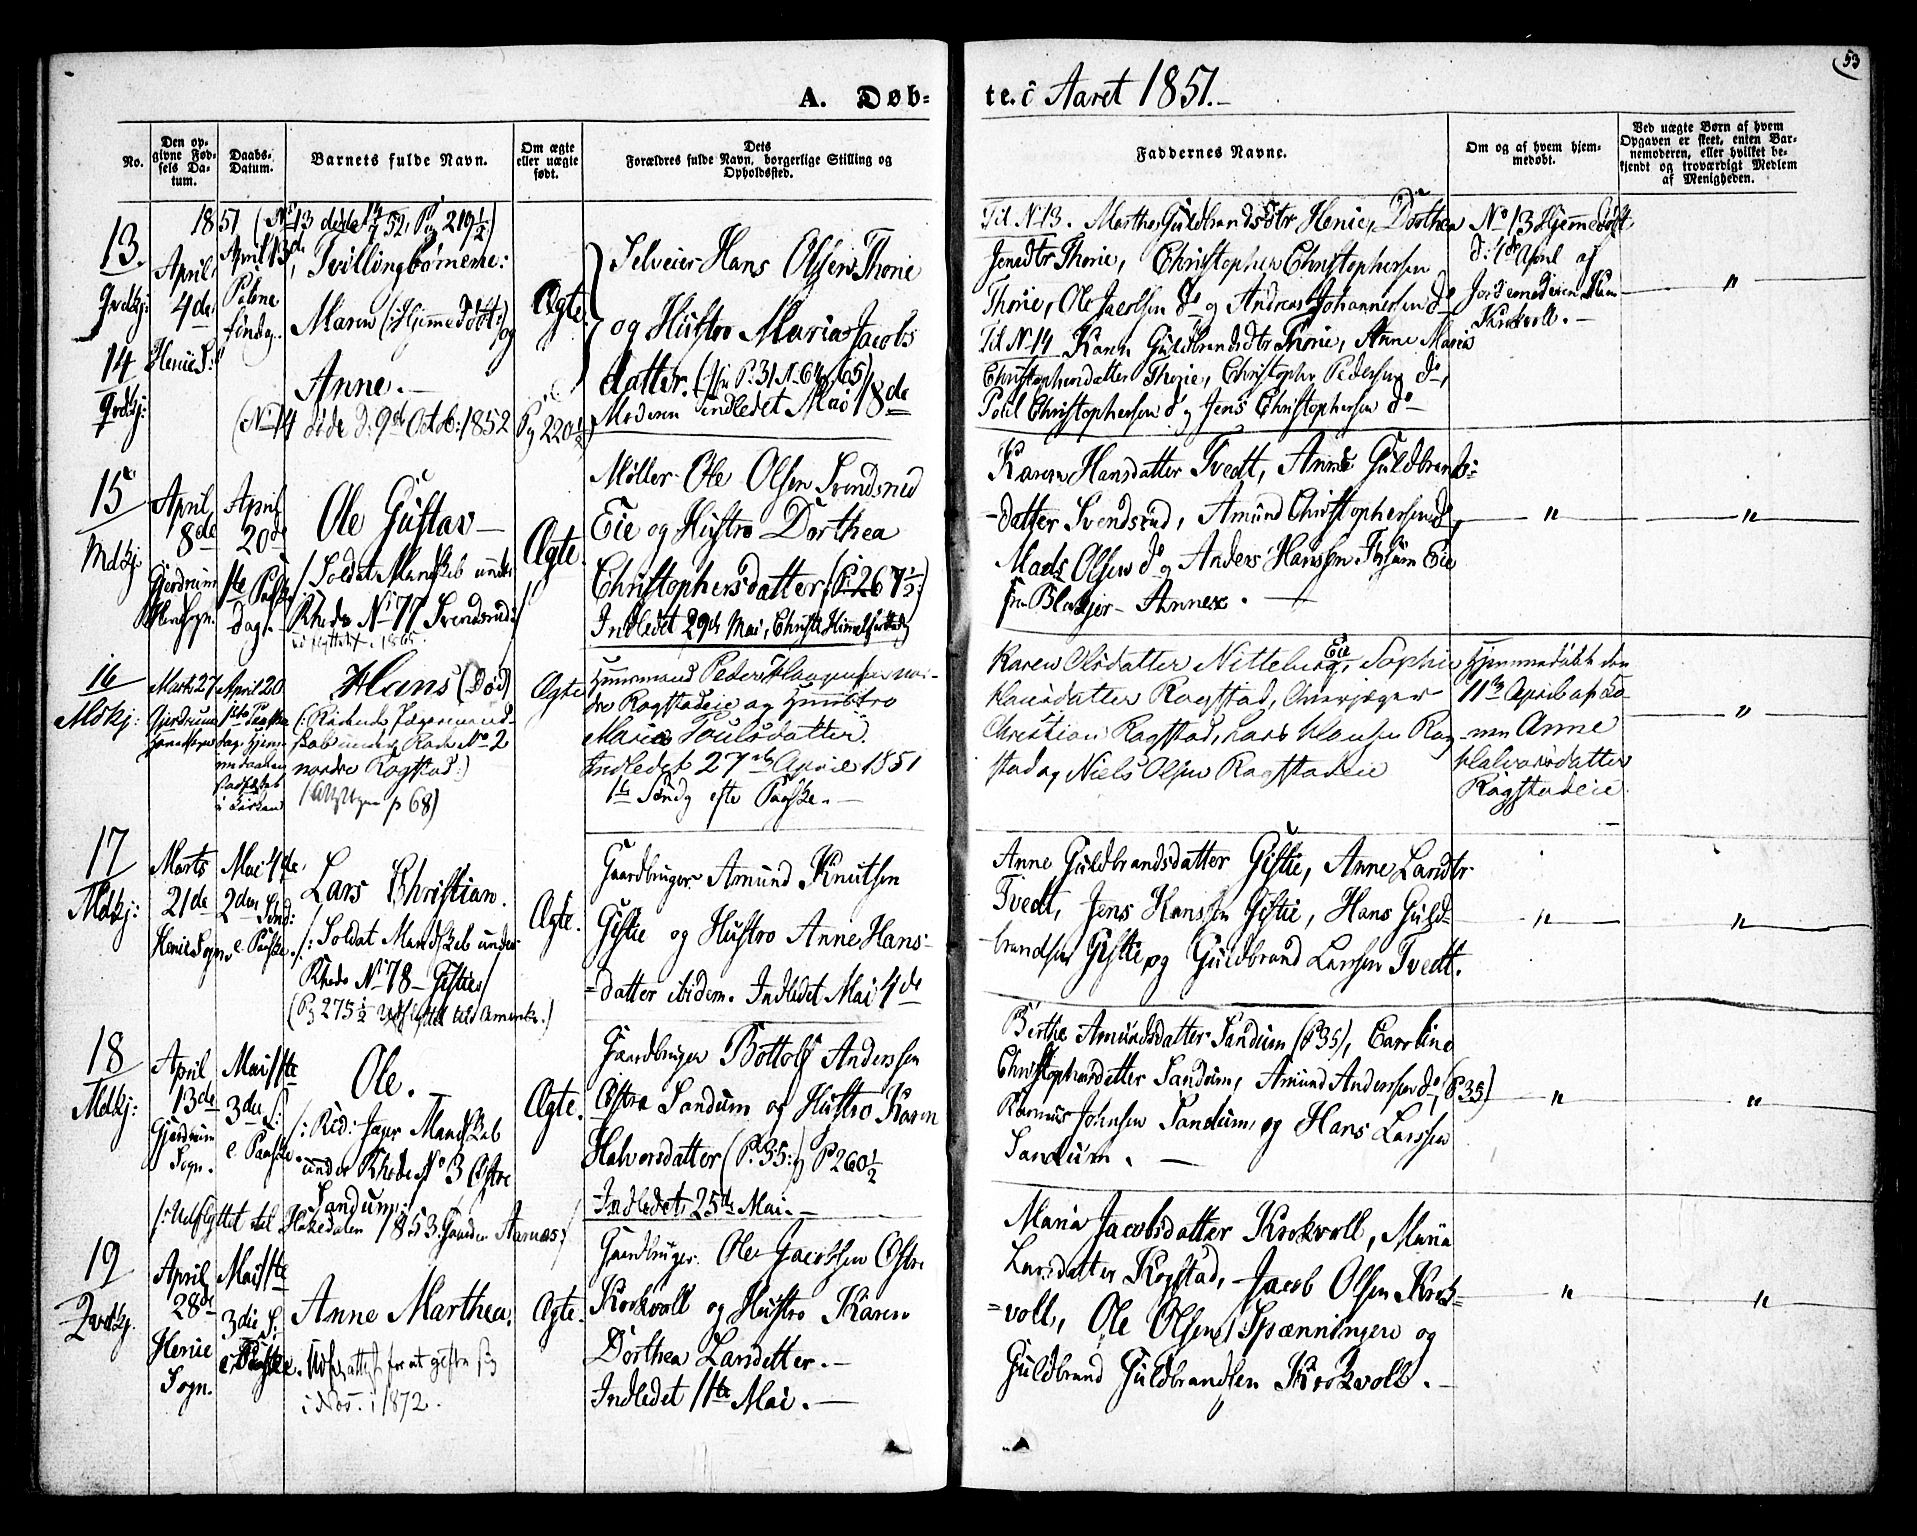 53
A. Døb-
te. i Aaret 1851.
No.
Den op-
givne Fød-
sels Da-
tum.
Daabs-
Datum.
Barnets fulde Navn.
Om ægte
eller uægte
født.
Dets
Forældres fulde Navn, borgerlige Stilling og
Opholdssted.
Faddernes Navne.
Om og af hvem hjem-
medøbt.
Ved uægte Børn af hvem
Opgaven er skeet, enten Bar-
nemoderen, eller hvilket be-
kjendt og troværdigt Medlem
af Menigheden.
13.
14
1851
April
4de
April 13de
Palme
søndag
(No 13 døde 52, Pag 219½)
Tvillingbørnene:
Maren (Hjemmedøbt) og
Anne.
(No 14 døde d: 9de Octob: 1852 Pag 220½)
Ægte
Selveier Hans Olsen Thorie
og Hustro Maria Jacobs
datter. P. 31 N. 64, 65)
Moderen indledet Mai 18de
Til No 13. Marthe Guldbrandsdtr Henie, Dorthea
Jensdtr Thorie, Christopher Christophersen
Thorie, Ole Jacobsen do og Andreas Johannessen do
Til No 14 Karen Guldbrandsdtr Thorie, Anne Maria
Christophersdatter Thorie, Christopher Pedersen do,
Poul Christophersen do og Jens Christophersen do
No 13 Hjemmedøbt
d: 4de April af
Jordemoderen
Krokvoll.
15
Mdkj:
April
8de
Gjerdrum
Sogn.
April
20de
1ste Paaske
Dag.
Ole Gustav
/: Soldat Mandskab under
Rhode No 77 Svendsrud:/
Ægte.
Møller Ole Olsen Svendsrud
Eie og Hustro Dorthea
Christophersdatter (P: 267½:)
Indledet 29de Mai, Christi Himmelfartsdag
Karen Hansdatter Tvedt, Anne Guldbrands-
datter Svendsrud, Amund Christophersen do,
Mads Olsen do og Anders Hanssen Eie
fra Blakjer Annex.
16
Mdkj:
Marts 27
Gjerdrum
April 20
1ste Paaske
dag
Hans (Død)
(: Ridende Jægermand-
skab under Rode No 2
nordre Rogstad:)
p 68)
Ægte
Huusmand Peder Haagensen nor-
dre Rogstadeie og Huustro
Maria Poulsdatter.
Indledet 27de April 1851
1te Søndg efter Paaske.
Karen Olsdatter Nitteberg Eie, Sophie
Hansdatter Rogstad,
Christian Rogstad, Lars Hansen Rog-
stad og Niels Olsen Rogstadeie
Hjemmedøbt den
11te April af Ko-
nen Anne
Halvorsdatter
Rogstadeie.
17
Mdkj:
Marts
21de
Henie Sogn.
Mai 4de
2den Sønd:
e. Paaske.
Lars Christian.
/: Soldat Mandskab under
Rhode No 78 Gistie:/
(Pg 275½ Udflyttet til Amerika.)
Ægte.
Gaardbruger Amund Knutsen
Gistie og Hustro Anne Hans-
datter ibidem. Indledet Mai 4de
Anne Guldbrandsdatter Gistie, Anne Larsdtr
Tvedt, Jens Hanssen Gistie, Hans Guld-
brandsen Gistie og Guldbrand Larssen Tvedt.
18
Mdkj:
April
13de
Gjerdrum
Sogn.
Mai 11te
3die S:
e. Paaske.
Ole.
/: Rid: Jæger Mandskab
under Rhode No 3 Østre
Sandum:/
/: Udflyttet til Hakedalen 1853 Gaarden Aarnæs:/
Ægte.
Gaardbruger Bottolf Anderssen
Østre Sandum og Hustro Karen
Halvorsdatter (P: 35:) P 260½
Indledet 25de Mai.
Berthe Amundsdatter Sandum (P35), Caroline
Christophersdatter Sandum, Amund Anderssen do, (P35)
Rasmus Johnsen Sandum, og Hans Larssen
Sandum.
19
April
28de
Henie
Sogn.
Mai 11te
3die S:
e. Paaske.
Anne Marthea.
for at gifte sig
i Nov. 1872.
Ægte.
Gaardbruger Ole Jacobsen Østre
Krokvoll og Hustro Karen
Dorthea Larsdatter.
Indledet 11te Mai.
Maria Jacobsdatter Krokvoll, Maria
Larsdatter Rogstad, Jacob Olsen Krok-
voll, Ole Olsen Spænningen og
Guldbrand Guldbrandsen Krokvoll.